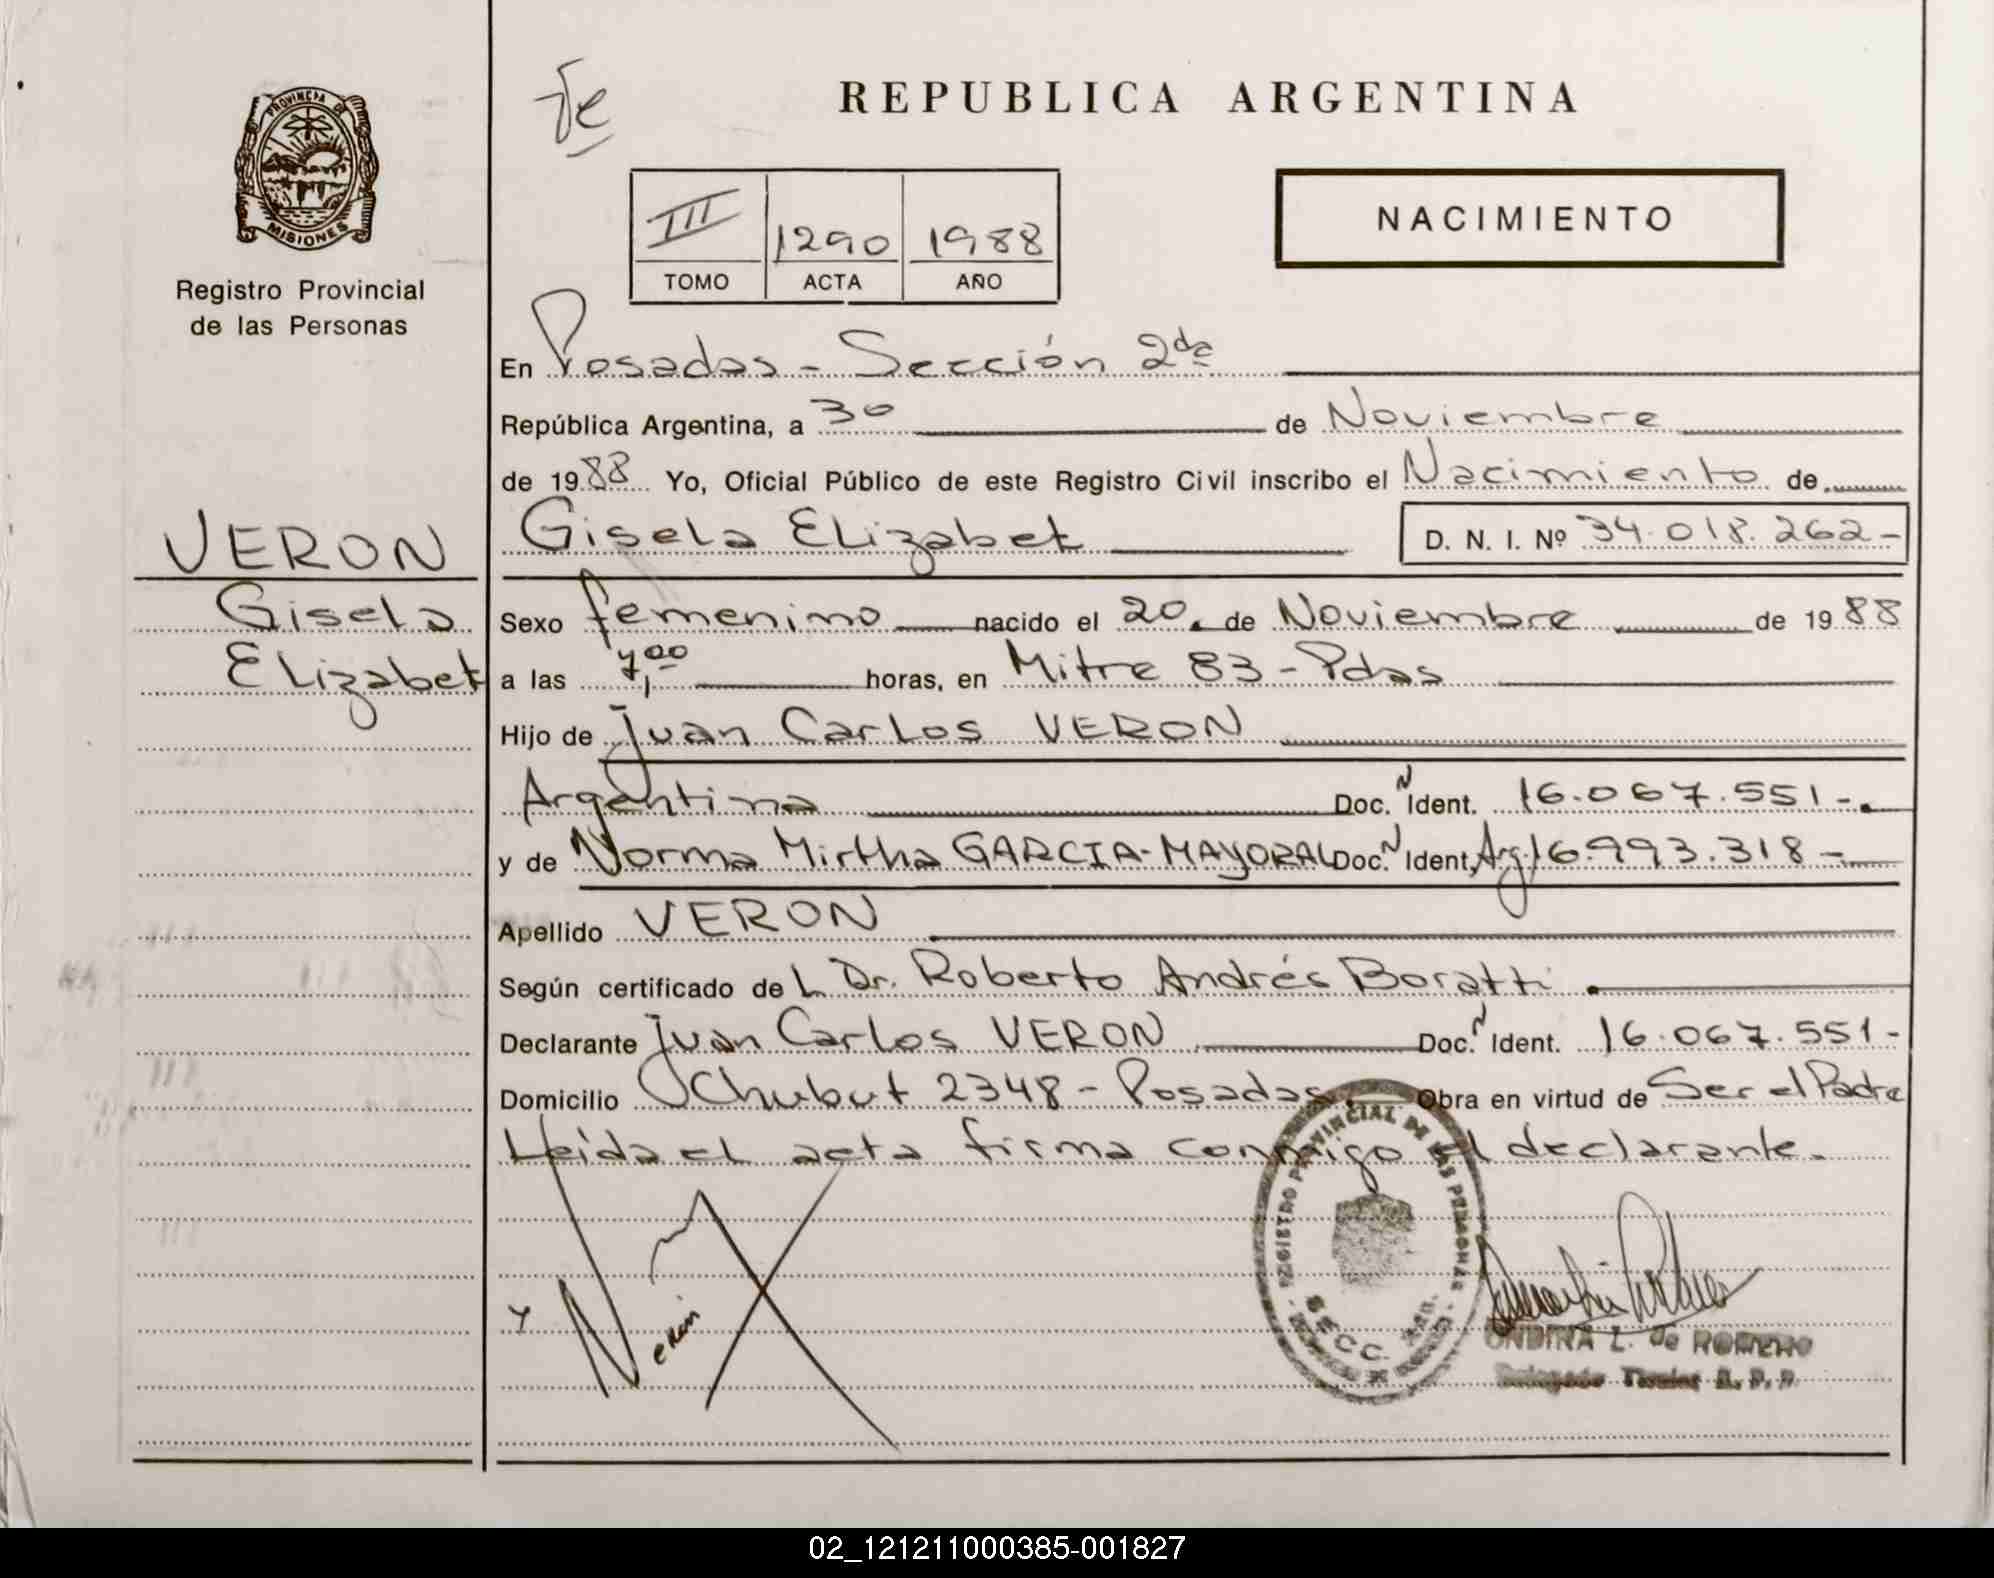 PROVINCIA DE
MISIONES
Registro Provincial
de las Personas
VERON
Gisela
Elizabet
REPUBLICA ARGENTINA
III 1290 1988
TOMO ACTA AÑO
NACIMIENTO
En Posadas - Sección 2da
República Argentina, a 30 de Noviembre
de 1988 Yo, Oficial Público de este Registro Civil inscribo el Nacimiento de
Gisela Elizabet D. N. I. Nº 34.018.262-
Sexo femenino nacido el 20 de Noviembre de 1988
a las 7,00 horas, en Mitre 83 - Pdas
Hijo de Juan Carlos VERON
Argentina Doc. N Ident. 16.067.551-.
y de Norma Mirtha GARCIA-MAYORAL Doc. N Ident, Arg. 16.993.318-
Apellido VERON
Según certificado de L Dr. Roberto Andrés Boratti
Declarante Juan Carlos VERON Doc. N Ident. 16.067.551-
Domicilio Chubut 2348 - Posadas. Obra en virtud de Ser el Padre
Leída el acta firma conmigo el declarante.
REGISTRO PROVINCIAL DE LAS PERSONAS
SECC.
ONDINA L. de ROMERO
02_121211000385-001827